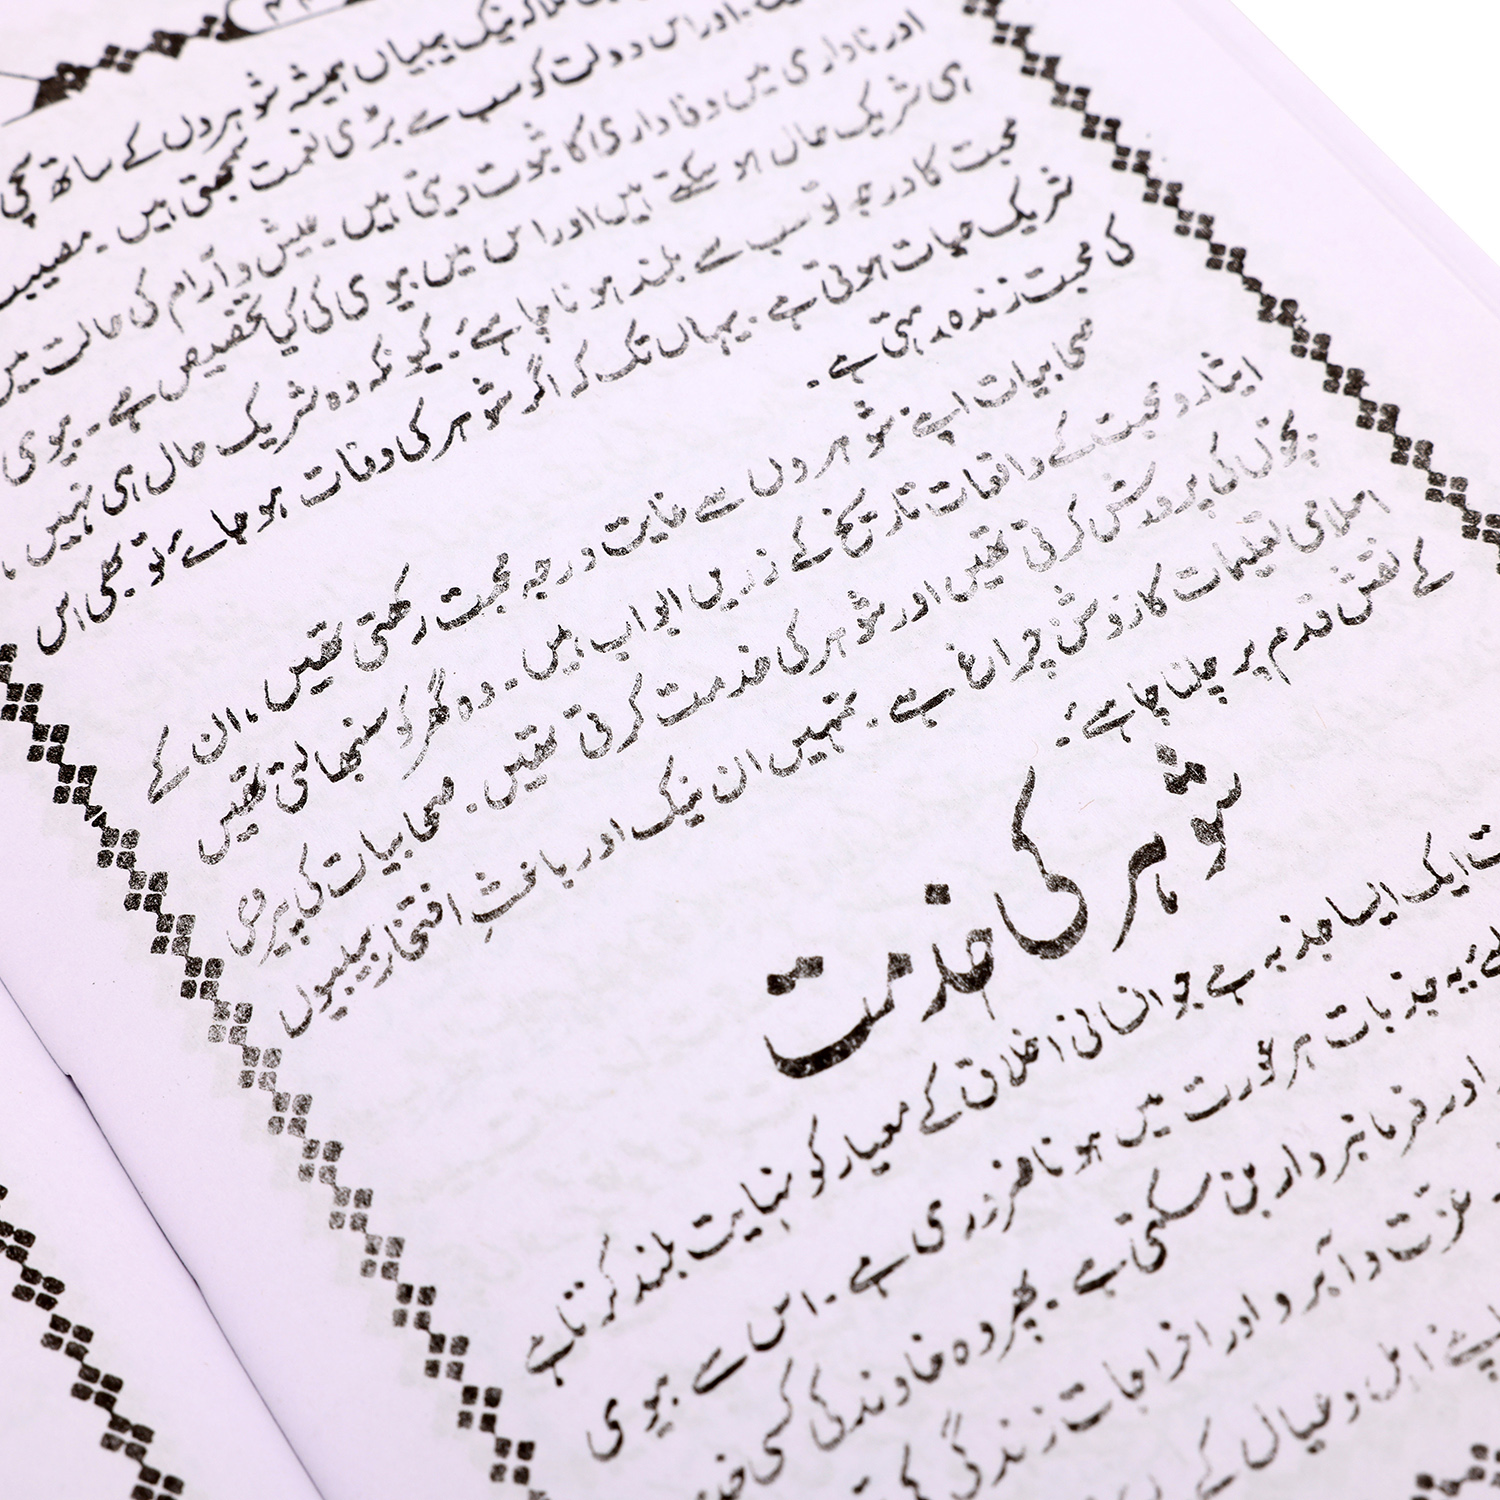 نیک بیبیاں ہمیشہ شوہروں کے ساتھ سچی
اور اس دولت کو سب سے بڑی نعمت سمجھتی ہیں ۔ مصیبت
اور ناداری میں وفاداری کا ثبوت دیتی ہیں ۔ عیش و آرام کی حالت میں
ہی شریک حال ہو سکتے ہیں اور اس میں بیوی کی کیا تخصیص ہے ۔ بیوی
محبت کا درجہ تو سب سے بلند ہونا چاہئے ۔ کیونکہ وہ شریک حال ہی نہیں ،
شریک حیات ہوتی ہے ۔ یہاں تک کہ اگر شوہر کی وفات ہو جائے تو بھی اس
کی محبت زندہ رہتی ہے ۔
صحابیات اپنے شوہروں سے غایت درجہ محبت رکھتی تھیں ، ان کے
ایثار و محبت کے واقعات تاریخ کے زریں ابواب ہیں ۔ وہ گھر کو سنبھالتی تھیں
بچوں کی پرورش کرتی تھیں اور شوہر کی خدمت کرتی تھیں ۔ صحابیات کی پیروی
اسلامی تعلیمات کا روشن چراغ ہے ۔ تمہیں ان نیک اور باعثِ افتخار بیبیوں
کے نقش قدم پر چلنا چاہئے ۔
شوہر کی خدمت
ایک ایسا جذبہ ہے جو انسانی اخلاق کے معیار کو نہایت بلند کرتا ہے
یہ جذبات ہر عورت میں ہونا ضروری ہے ۔ اس سے بیوی
اور فرمانبردار بن سکتی ہے ۔ پھر وہ خاوند کی کسی
عزت و آبرو اور اخراجات زندگی کی
اپنے اہل و عیال کے